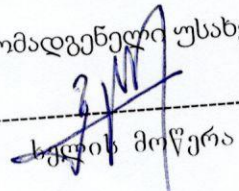 ომადგენელი უსახ
ხელის მოწერა